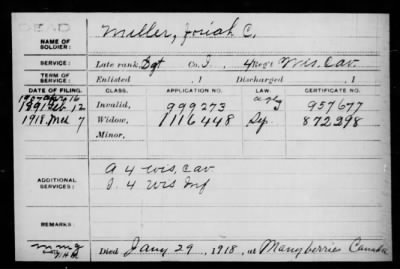 DEAD
NAME OF SOLDIER: Miller, Josiah C.
SERVICE: Late rank, Sgt Co. I, 4 Reg't Wis. Cav.
TERM OF SERVICE: Enlisted , 1 Discharged , 1
DATE OF FILING. CLASS. APPLICATION NO. LAW. CERTIFICATE NO.
1891 Feb 12 Invalid, 999273 957677
1918, Mch 7 Widow, 1116448 872298
Minor,
ADDITIONAL SERVICES: A 4 Wis. Cav
I. 4 Wis Inf
REMARKS:
Died Jany 29, 1918, at Manyberries Canada